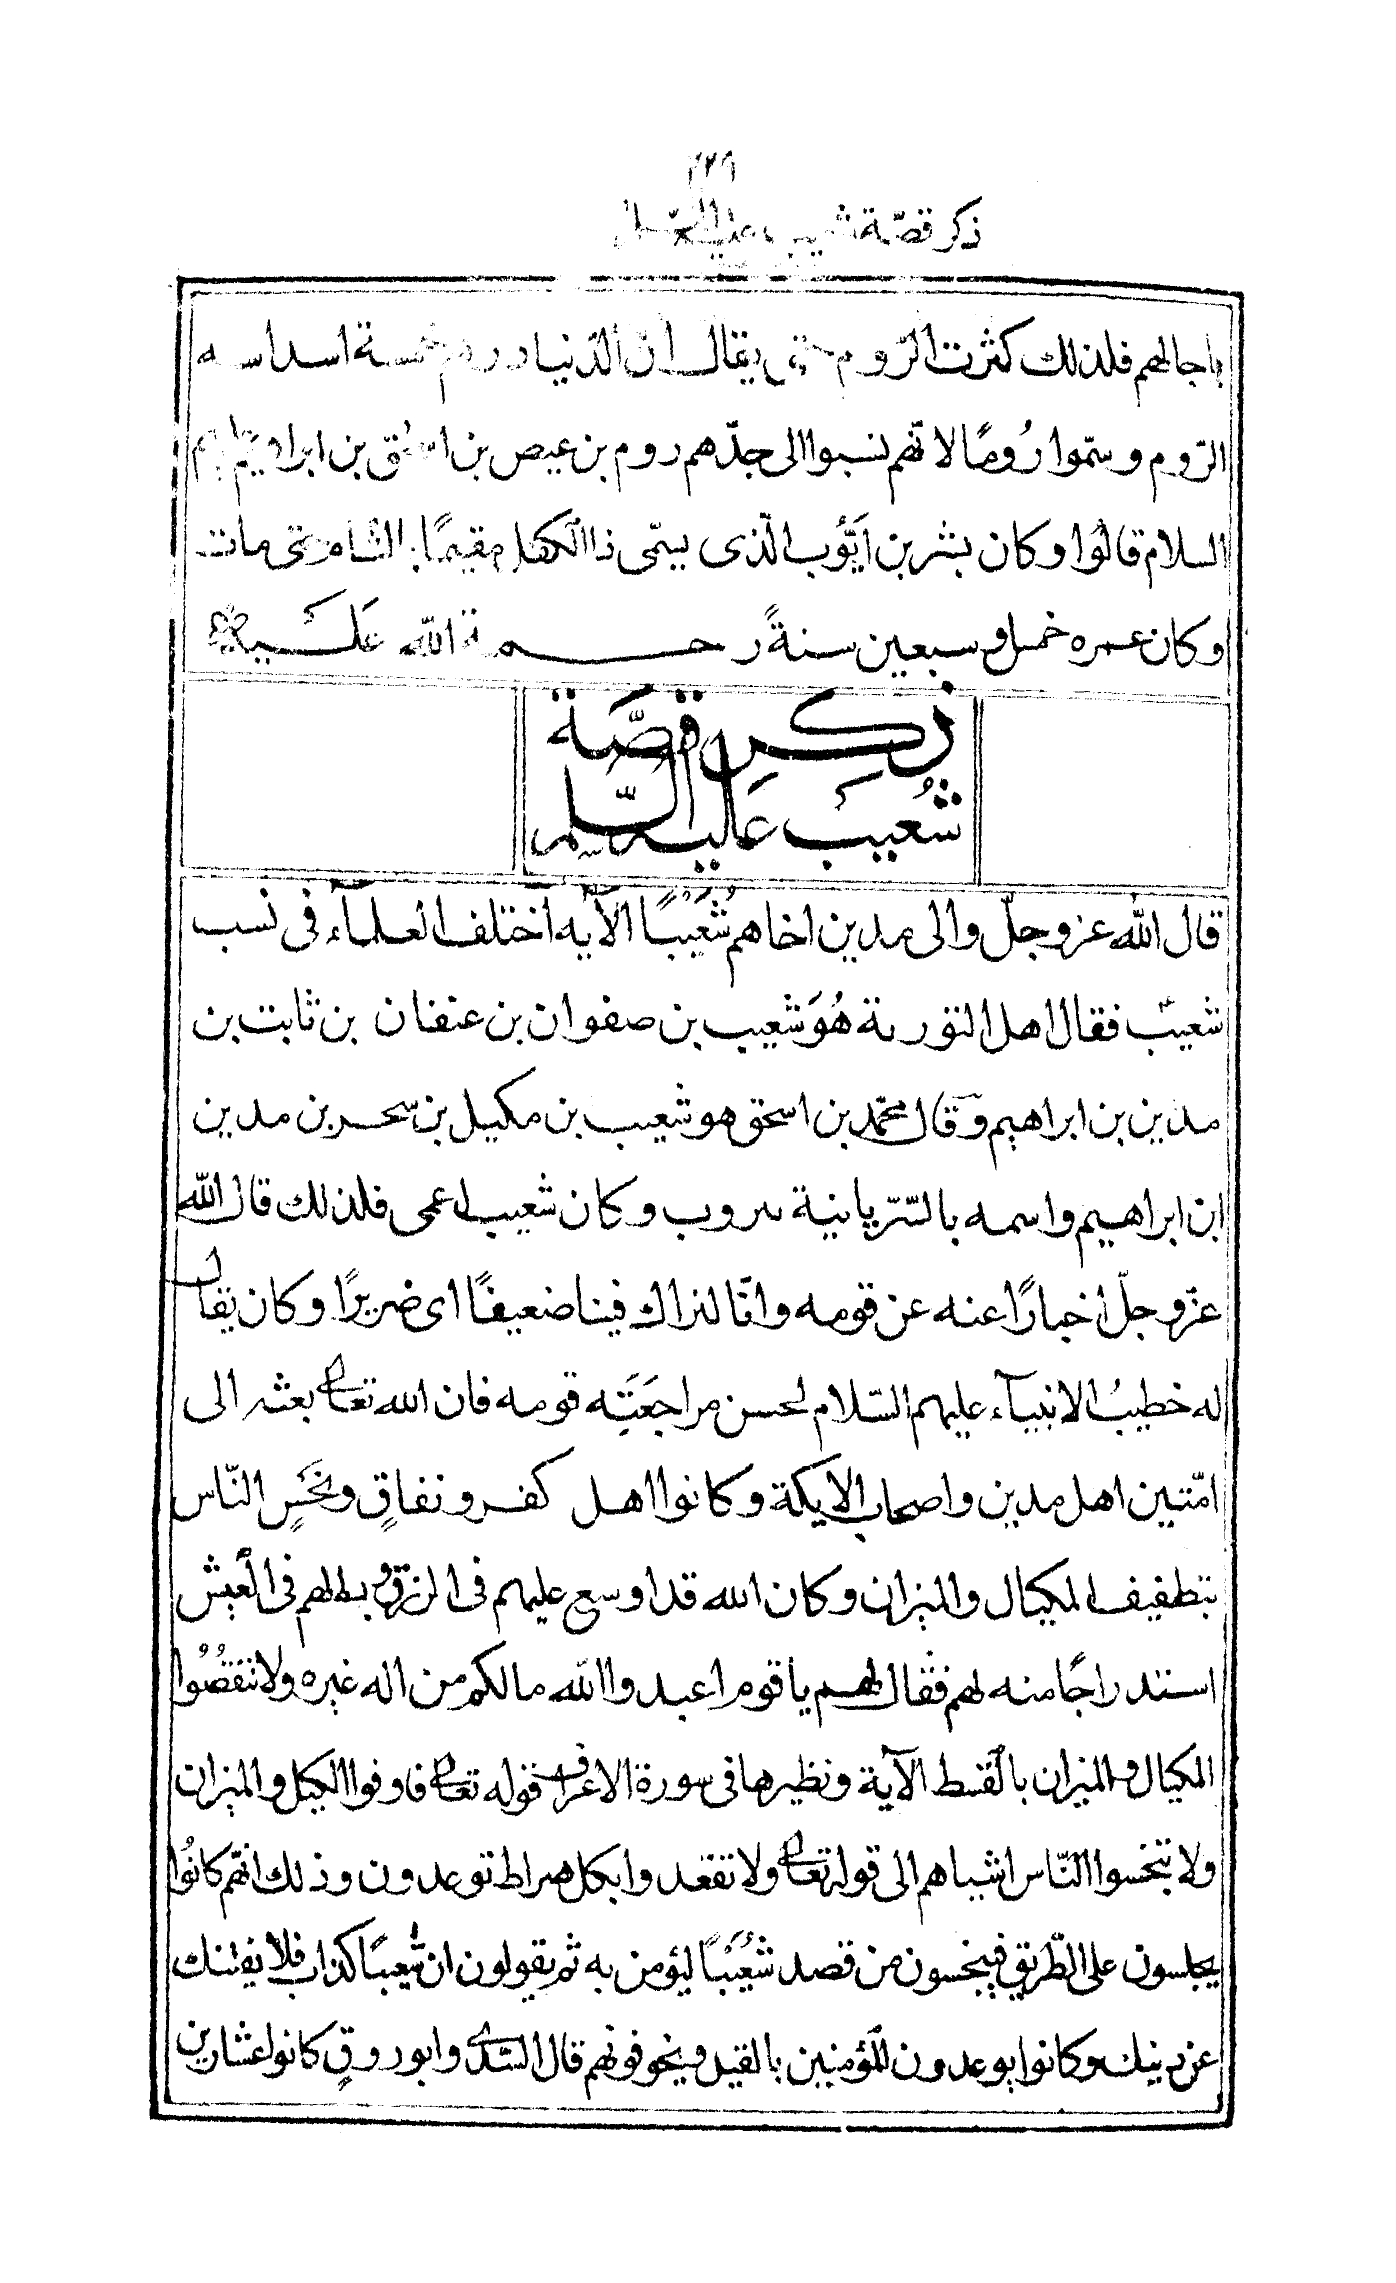 ٢٢٩
ذكر قصّة شعيب عليه السّلام
باجالهم فلذلك كثرت الرّوم حتى يقال انّ الدّنيا دروم خمسة اسداسه
الرّوم وسمّوا رُومًا لانّهم نسبوا الى جدّهم روم بن عيص بن اسحق بن ابراهيم عليهم
السلام قالوُا وكان بشر بن ايَّوُب الّذى يسمّى ذا الكفل مقيمًا بالشام حتى مات
وكان عمره خمس وسبعين سنةً رحمة الله عَلَيه
ذكر قصَّة
شُعيَب عَليه السّلام
قال الله عز وجلّ والى مدين اخاهم شُعَيْبًا الآيه اختلف العلمآء فى نسب
شعيب فقال اهل التورية هُوَ شعيب بن صفوان بن عنفان بن ثابت بن
مدين بن ابراهيم وقال محمّد بن اسحق هو شعيب بن مكيل بن سحر بن مدين
ابن ابراهيم واسمه بالسّريانية سروب وكان شعيب اعمى فلذلك قال الله
عزّ وجلّ اخبارًا عنه عن قومه وانّا لنراك فينا ضعيفًا اى ضريرًا وكان يقال
له خطيبُ الانبيآء عليهم السّلام لحسن مراجَعَتِه قومه فان الله تعالى بعثه الى
امّتين اهل مدين واصحاب الايكة وكانوا اهل كفر ونفاقٍ وبَخَسٍ النّاس
بتطفيف المكيال والميزان وكان الله قد اوسع عليهم فى الرزق وبسط لهم فى العيش
استدراجًا منه لهم فقال لهم يا قوم اعبدوا الله ما لكم من اله غيره ولا تنقصُوُا
المكيال والميزان بالقسط الآية ونظيرها فى سورة الاعراف قوله تعالى فاوفوا الكيل والميزان
ولا تبخسوا النّاس اشياهم الى قوله تعالى ولا تقعدوا بكل صراط توعدون وذلك انهّم كانوُا
يجلسون على الطّريق فيبخسون من قصد شعُيْبًا ليؤمن به ثم يقولون ان شعيبًا كذاب فلا يفتنك
عن دينك وكانوا يوعدون المؤمنين بالقتل ويخوفونهم قال السّدى وابو روقٍ كانوا عشارين